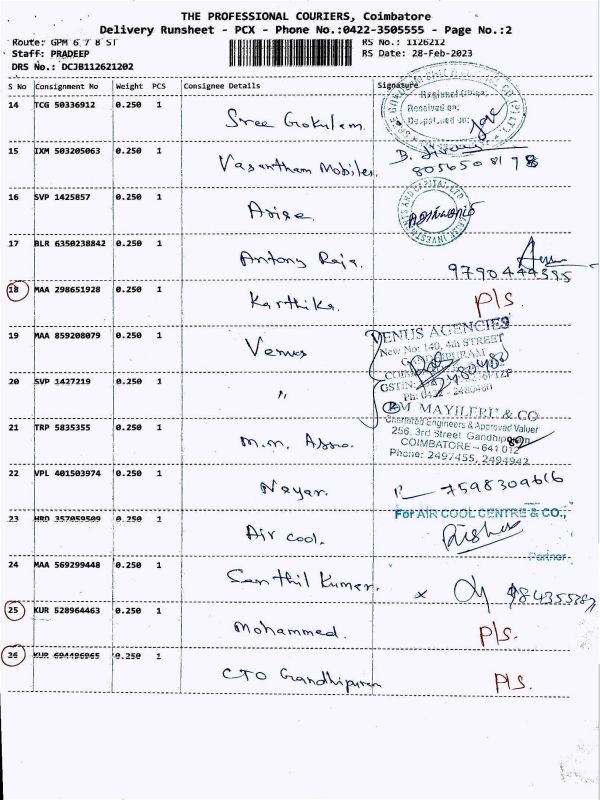 THE PROFESSIONAL COURIERS, Coimbatore
Delivery Runsheet - PCX - Phone No.:0422-3505555 - Page No.:2
Route: GPM 6 7 8 ST
RS No.: 1126212
Staff: PRADEEP
RS Date: 28-Feb-2023
DRS No.: DCJB112621202
S No Consignment No Weight PCS Consignee Details Signature
14 TCG 50336912 0.250 1 Sree Gokulam
Regional Office
Received on:
Despatched on:
15 IXM 503205063 0.250 1 Vasantham Mobiles.
B.
8056508178
16 SVP 1425857 0.250 1 Arise.
17 BLR 6350238842 0.250 1 Antony Raja.
9790444385
18 MAA 298651928 0.250 1 Karthika. P/s.
19 MAA 859208079 0.250 1 Venus
VENUS AGENCIES
New No: 140, 4th STREET
GANDHIPURAM
20 SVP 1427219 0.250 1 "
GSTIN:
Ph: 0422 - 2480460
MAYILERU & CO
Chartered Engineers & Approved Valuer
21 TRP 5835355 0.250 1 M.M. Asso.
256, 3rd Street Gandhipuram
COIMBATORE - 641 012
Phone: 2497455, 2494942
22 VPL 401503974 0.250 1 Nayar. 7598309616
23 HRD 357059509 0.250 1 Air cool.
For AIR COOL CENTRE & CO.,
Partner
24 MAA 569299448 0.250 1 Senthil Kumar. x
25 KUR 528964463 0.250 1 Mohammed. P/s.
26 KUR 694496965 0.250 1 CTO Gandhipuram P/s.